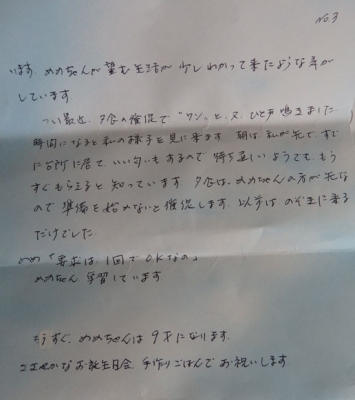 No.3
います。めめちゃんが望む生活が少しわかって来たような気が
しています。
つい最近、夕食の催促で「ワン」と、又、ひと声鳴きました
時間になると私の様子を見に来ます。朝は私が先で、すで
に台所に居て、いい匂いもあるので待ち遠しいようでも、もう
すぐもらえると知っています。夕食は、めめちゃんの方が先な
ので準備を始めないと催促します。以前はのぞきに来る
だけでした。
めめ「要求は1回でOKなの」
めめちゃん学習しています。
もうすぐ、めめちゃんは9才になります。
ささやかなお誕生日会、手作りごはんでお祝いします。